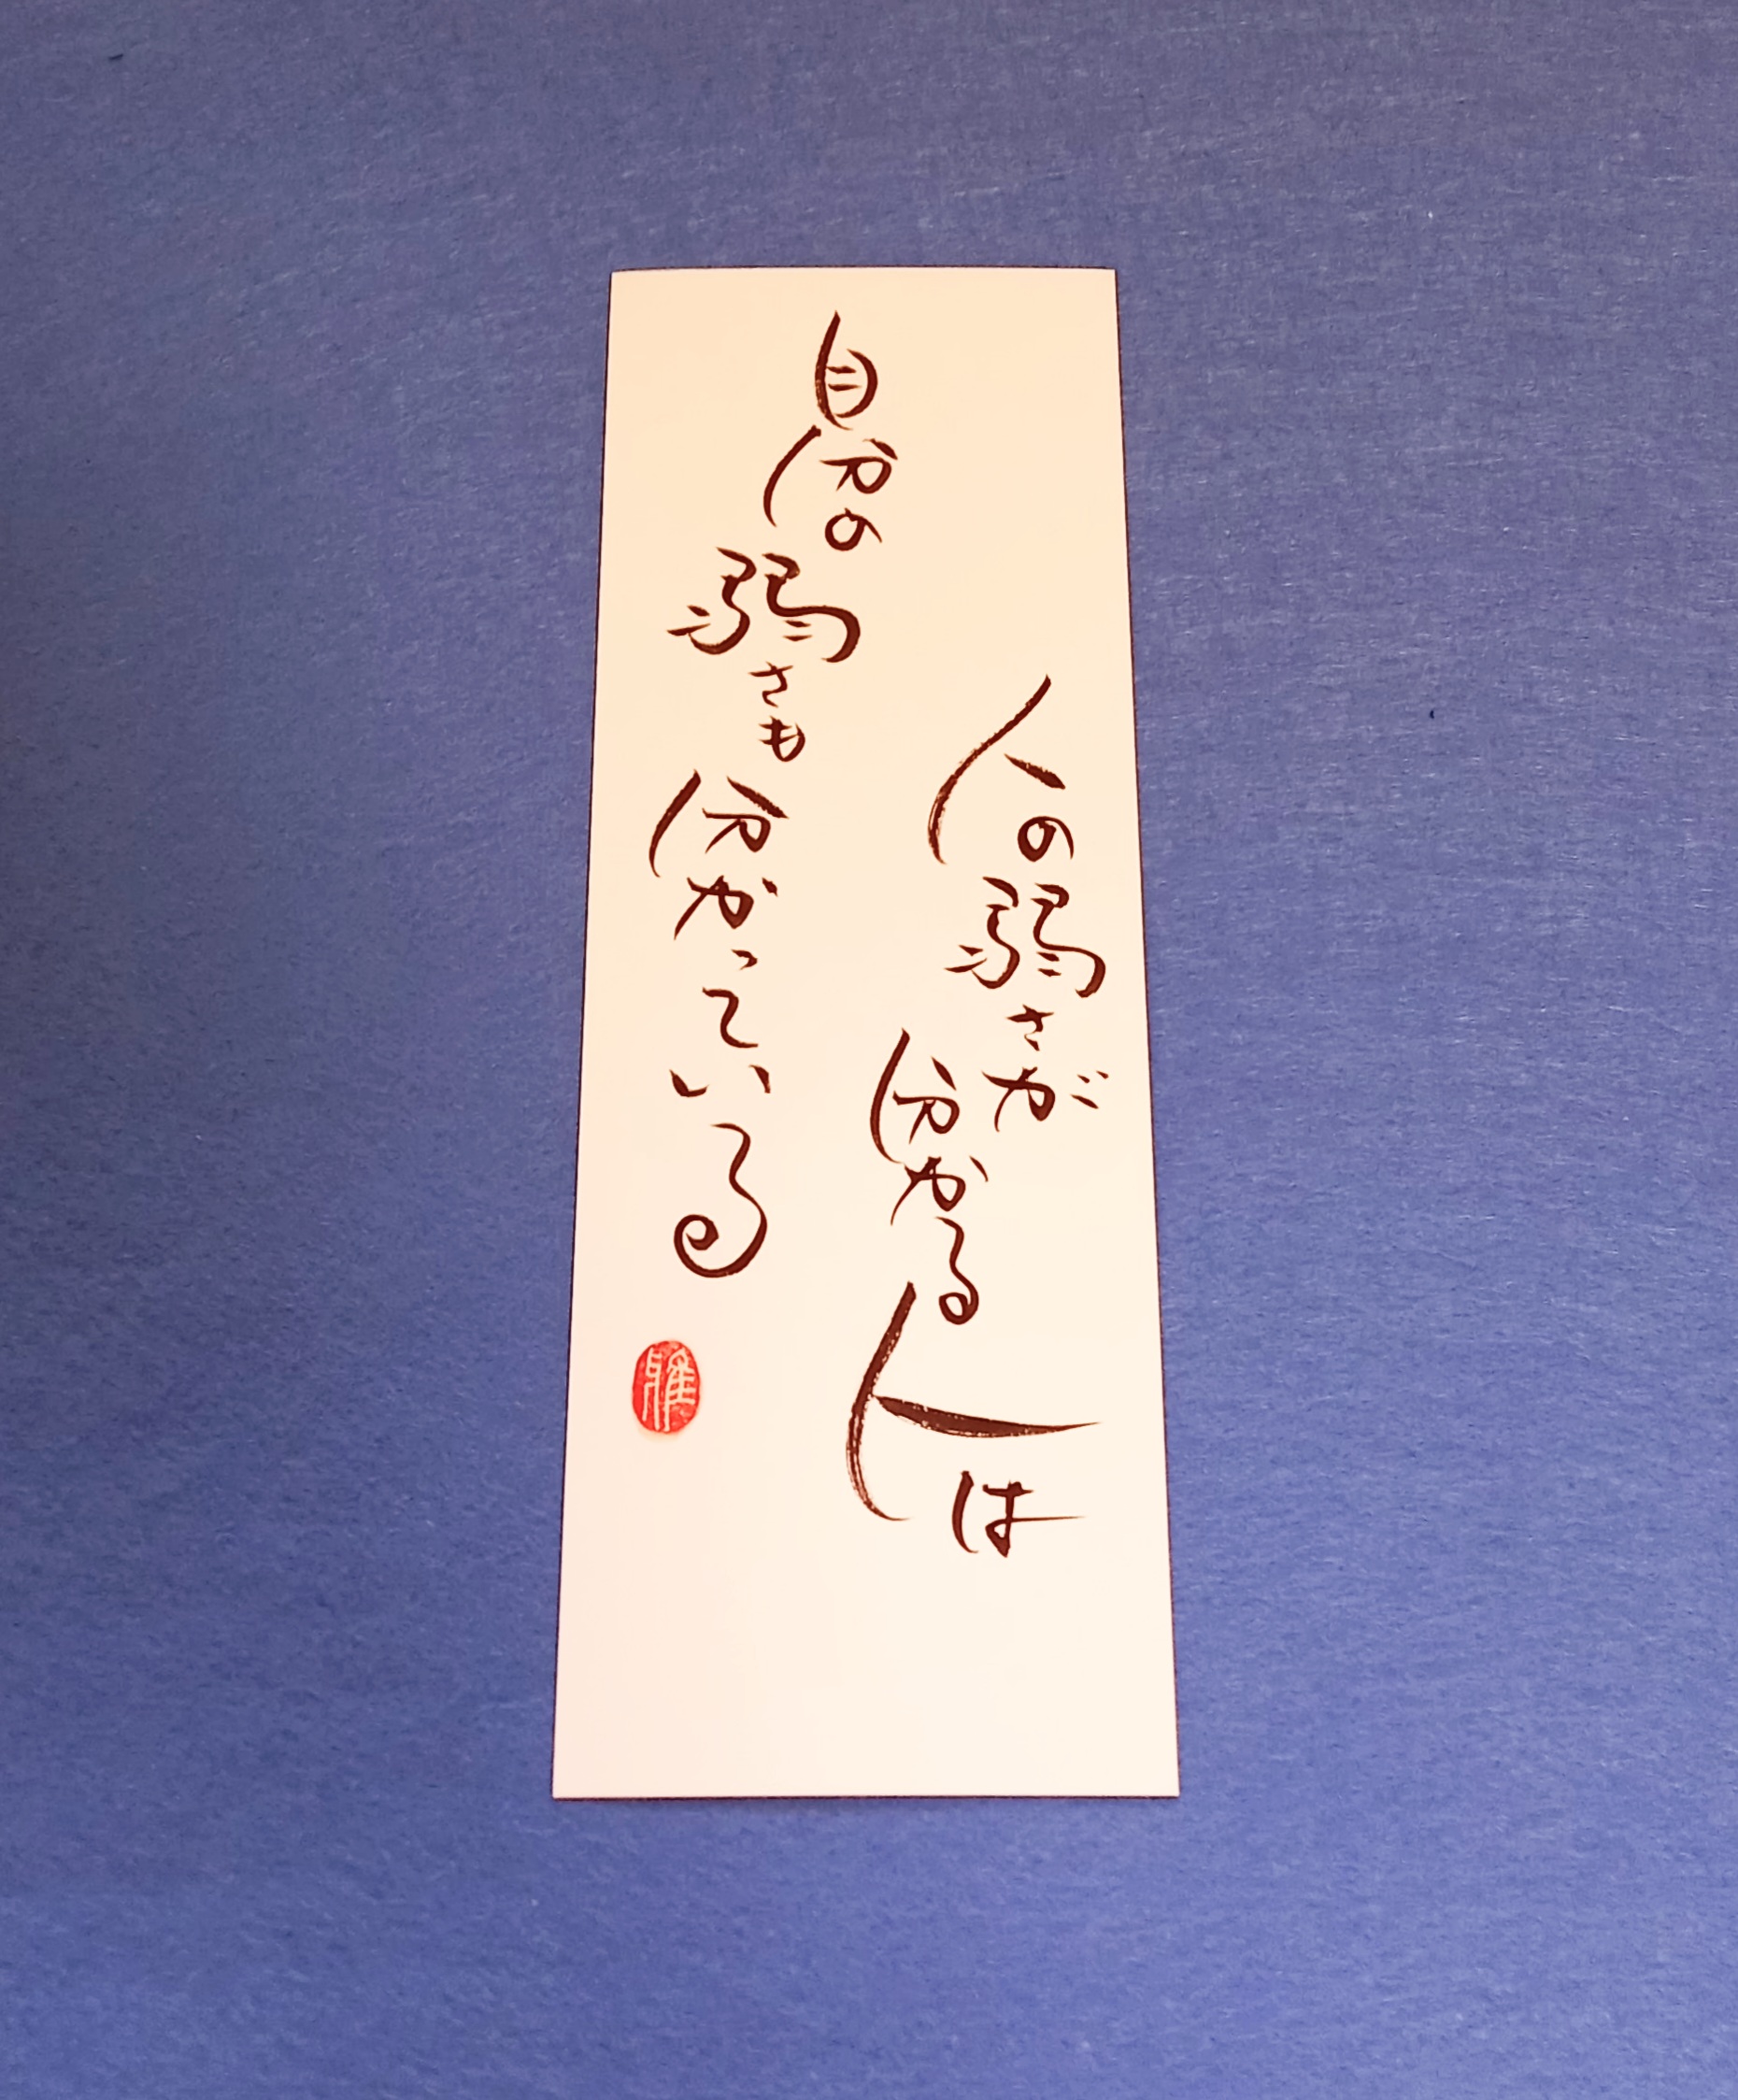 人の弱さが分かる人は
自分の弱さも分かっている
雅